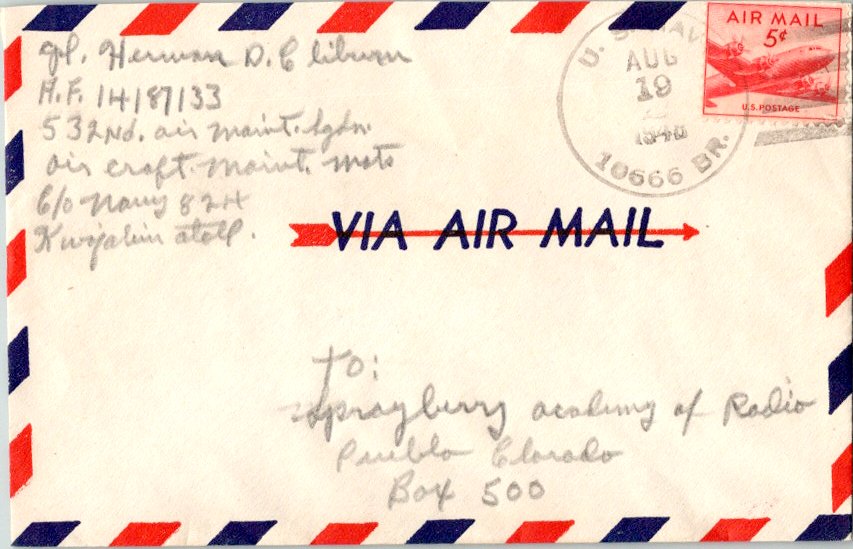 Herman D. Cliburn
A.F. 14187133
532Nd. air maint. Sqdn.
air craft. maint. mats
C/o Navy 824
Kwajalin atoll.
U. S. NAVY
AUG
19
10666 BR.
AIR MAIL
5¢
U.S. POSTAGE
VIA AIR MAIL
To:
Sprayberry academy of Radio
Pueblo Clorado
Box 500